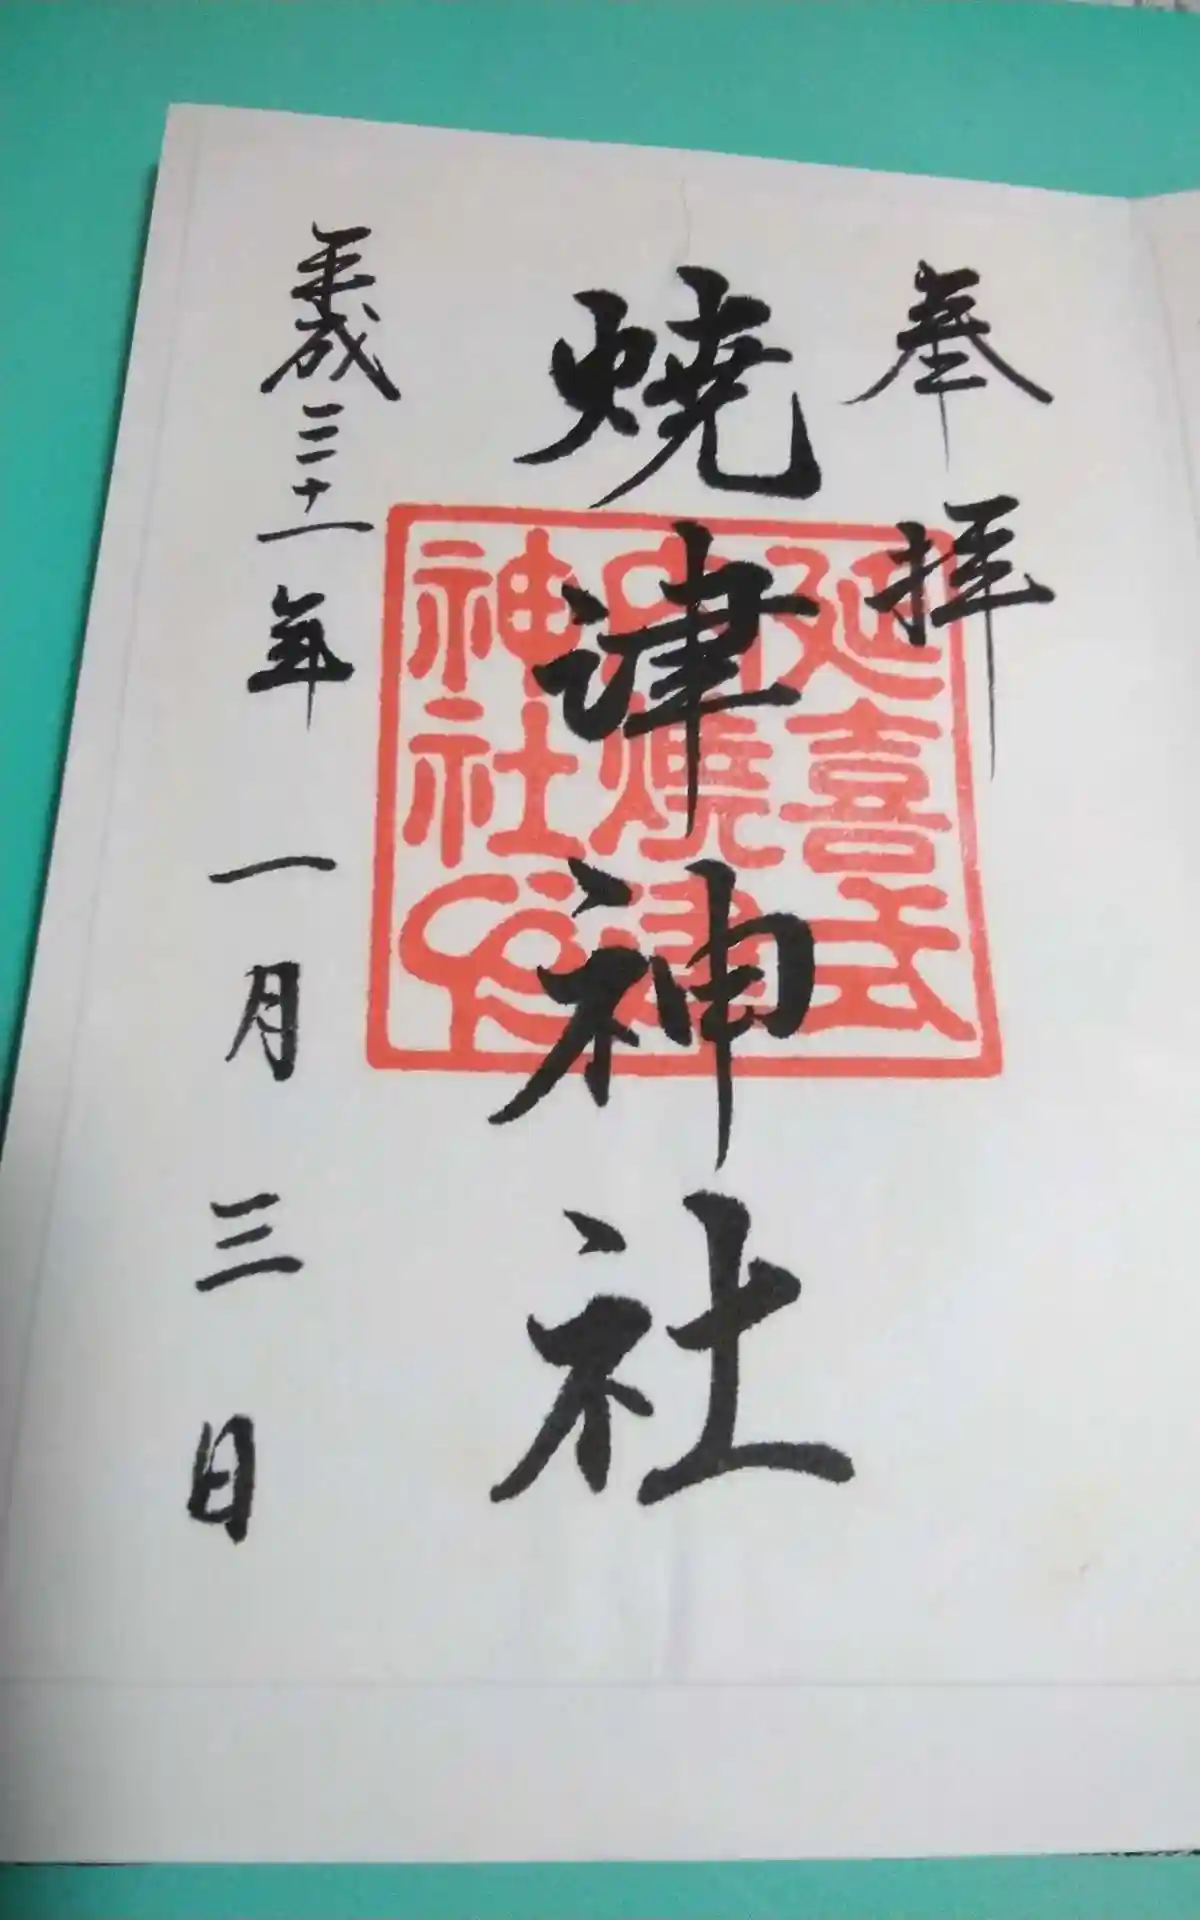 奉拝
焼津神社
平成三十一年一月三日
延喜式
内燒津
神社印